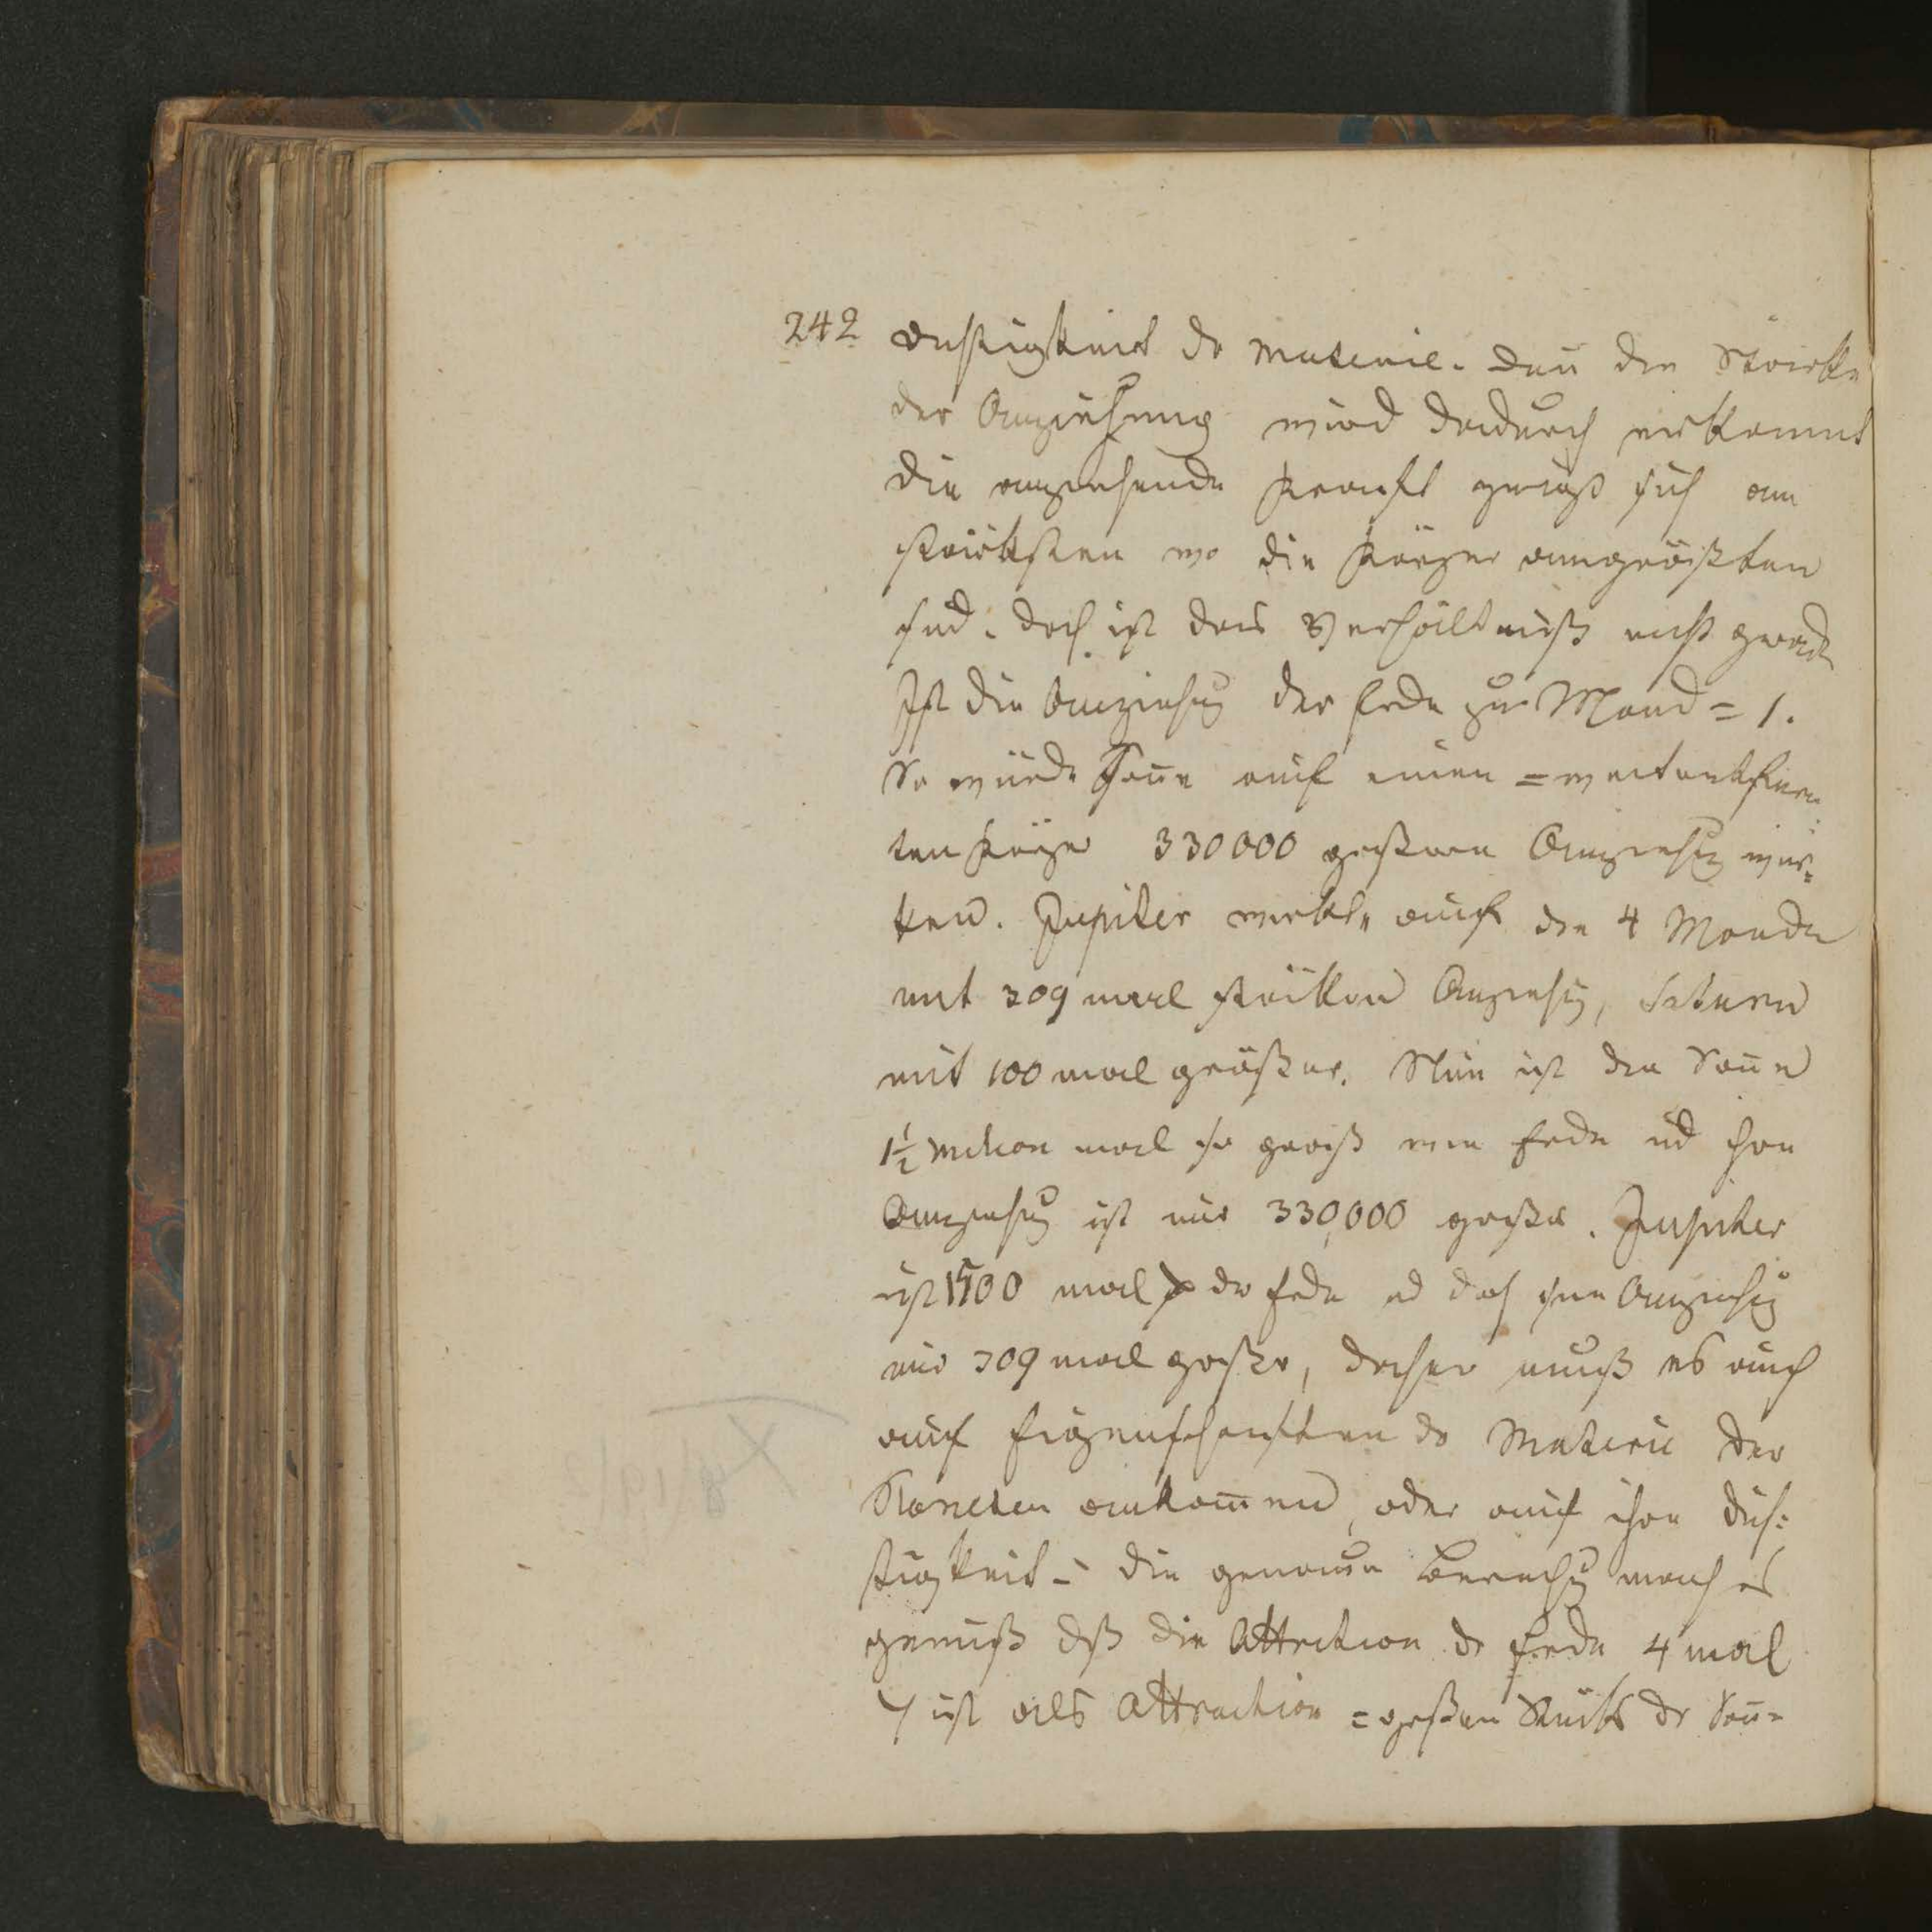 242 dichtigkeit dr Materie. Den̄ die Stärke
der Anziehung wird dadurch erkannt
die anziehende Kraft zeigt sich am
stärksten wo die Körper amgrößten
sind. doch ist das Verhältniß nicht gerade
Ist die Anziehug der Erde zu Mond = 1.
So würde Son̄e auf einen = weitentfern
ten Körper 330000 größere Anziehug wir=
ken. Jupiter wirkt auf die 4 Monde
mit 309 mal stärkere Anziehg, Saturn
mit 100 mal größer. Nun ist die Son̄e
1½ Milion mal so groß wie Erde ud ihre
Anziehug ist nur 330,000 größer. Jupiter
ist 1500 mal > dr Erde ud doch seine Anziehug
nur 309 mal größer, daher muß es auch
auf Eigenschaften dr Materie der
Planeten ankom̄en, oder auf ihre Dich=
tigkeit - die genaue Berechng macht es
gewiß dß die Attraction dr Erde 4 mal
ist als Attraction = großen Stücks dr Son̄=